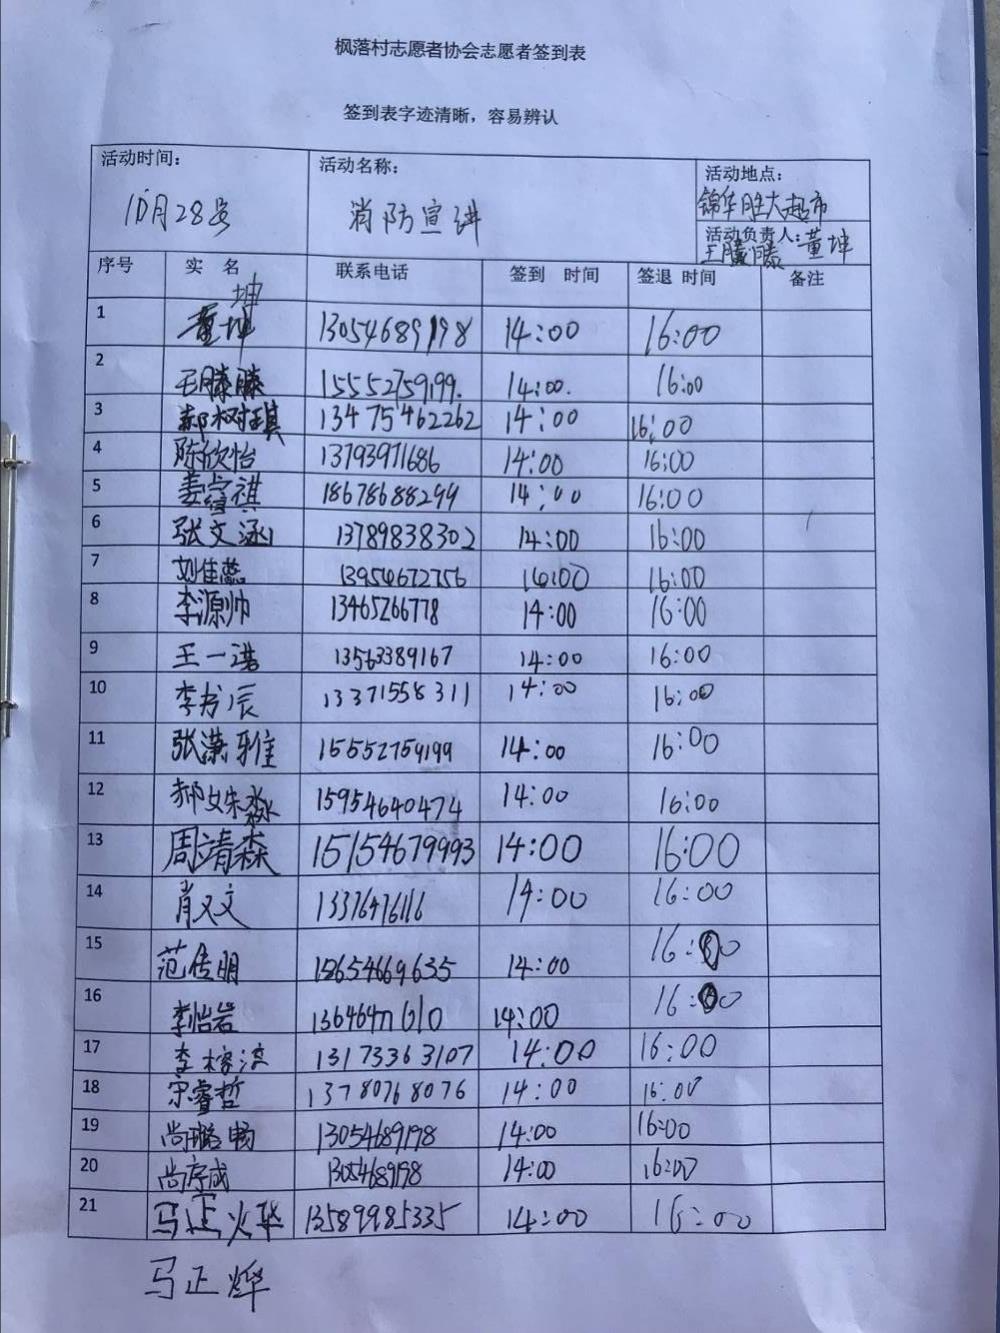 枫落村志愿者协会志愿者签到表
签到表字迹清晰，容易辨认
活动时间： 活动名称： 活动地点：
10月28号 消防宣讲 锦华胜大超市
活动负责人：董坤
王滕滕
序号 实 名 联系电话 签到 时间 签退 时间 备注
坤
1 董坤 13054689198 14:00 16:00
2 王滕滕 15552759199. 14:00. 16:00
3 郝树琪 13475462262 14:00 16:00
4 陈欣怡 13793971686 14:00 16:00
5 姜 祺 18678688299 14:00 16:00
6 张文涵 13789838302 14:00 16:00
7 刘佳蕊 13954672756 14:00 16:00
8 李源帅 13465266778 14:00 16:00
9 王一诺 13563389167 14:00 16:00
10 李书辰 13371558311 14:00 16:00
11 张潇雅 15552759199 14:00 16:00
12 郝姝淼 15954640474 14:00 16:00
13 周靖森 15154679993 14:00 16:00
14 肖又文 13376476116 14:00 16:00
15 范传明 18654669635 14:00 16:00
16 李怡岩 14:00 16:00
17 李 13173363107 14:00 16:00
18 宗睿哲 13780768076 14:00 16:00
19 尚璐畅 13054689198 14:00 16:00
20 尚序成 13054689198 14:00 16:00
21 马正烨 13589985335 14:00 16:00
马正烨